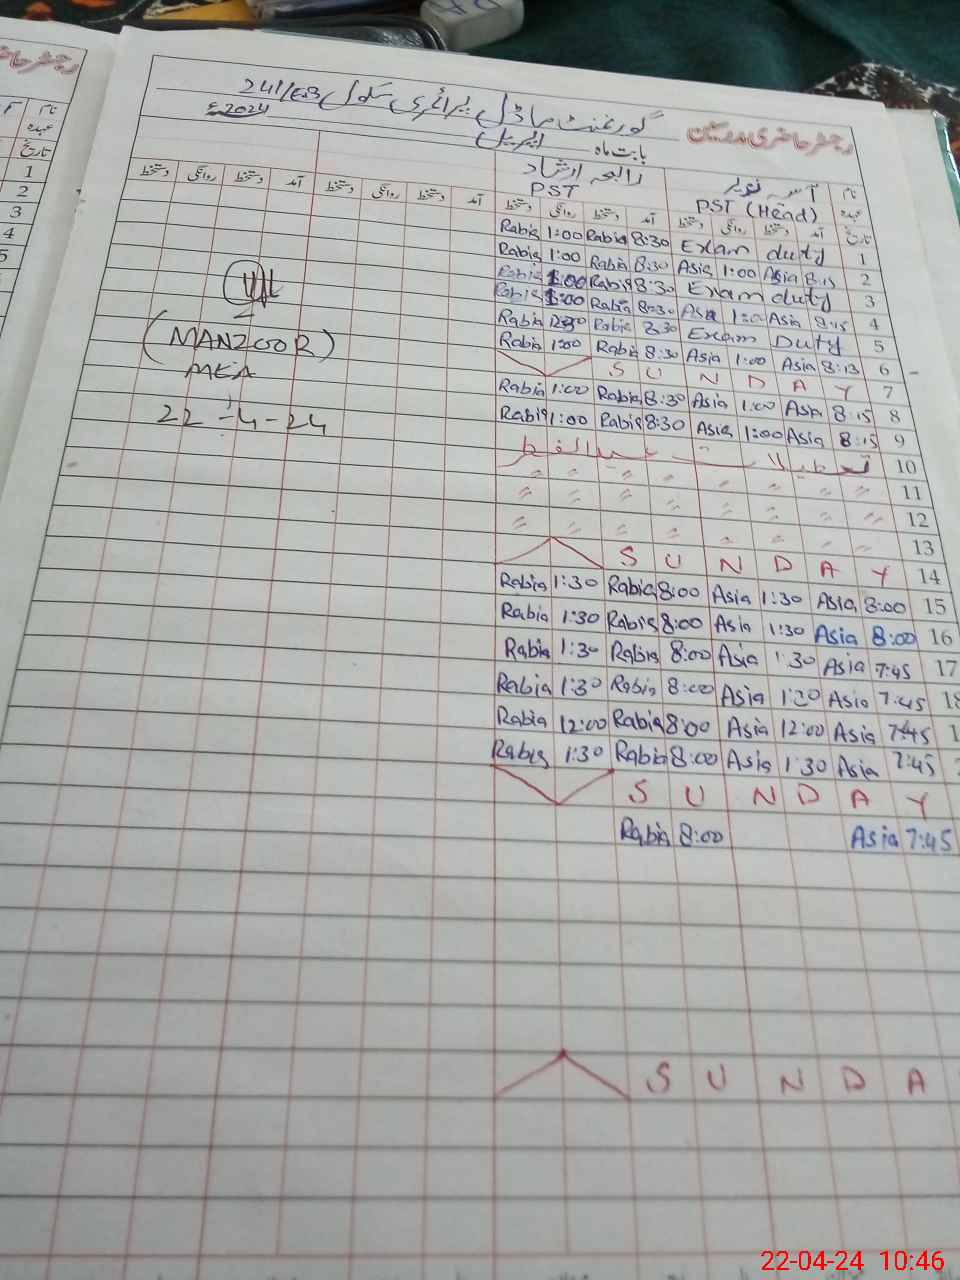 رجسٹر حاضری مدرسین
گورنمنٹ ماڈل پرائمری سکول 241/EB
بابت ماہ اپریل 2024ء
نام آسیہ رابعہ ارشاد
عہدہ PST (Head) PST
تاریخ آمد دستخط روانگی دستخط آمد دستخط روانگی دستخط آمد دستخط روانگی دستخط آمد دستخط روانگی دستخط
Rabia 1:00 Rabia 8:30 Exam duty 1
Rabia 1:00 Rabia 8:30 Asia 1:00 Asia 8:15 2
Rabia 1:00 Rabia 8:30 Exam duty 3
Rabia 1:00 Rabia 8:30 Asia 1:00 Asia 8:15 4
Rabia 12:30 Rabia 8:30 Exam Duty 5
Rabia 1:00 Rabia 8:30 Asia 1:00 Asia 8:13 6
S U N D A Y 7
Rabia 1:00 Rabia 8:30 Asia 1:00 Asia 8:15 8
Rabia 1:00 Rabia 8:30 Asia 1:00 Asia 8:15 9
تعطیلات عیدالفطر 10
〃 〃 〃 〃 〃 〃 〃 〃 11
〃 〃 〃 〃 〃 〃 〃 〃 12
〃 〃 〃 〃 〃 〃 〃 〃 13
S U N D A Y 14
Rabia 1:30 Rabia 8:00 Asia 1:30 Asia 8:00 15
Rabia 1:30 Rabia 8:00 Asia 1:30 Asia 8:00 16
Rabia 1:30 Rabia 8:00 Asia 1:30 Asia 7:45 17
Rabia 1:30 Rabia 8:00 Asia 1:30 Asia 7:45 18
Rabia 12:00 Rabia 8:00 Asia 12:00 Asia 7:45 1
Rabia 1:30 Rabia 8:00 Asia 1:30 Asia 7:45
S U N D A Y
Rabia 8:00 Asia 7:45
S U N D A
(MANZOOR)
MEA
22-4-24
رجسٹر حاضری
نام
عہدہ
تاریخ
1
2
3
4
5
22-04-24 10:46